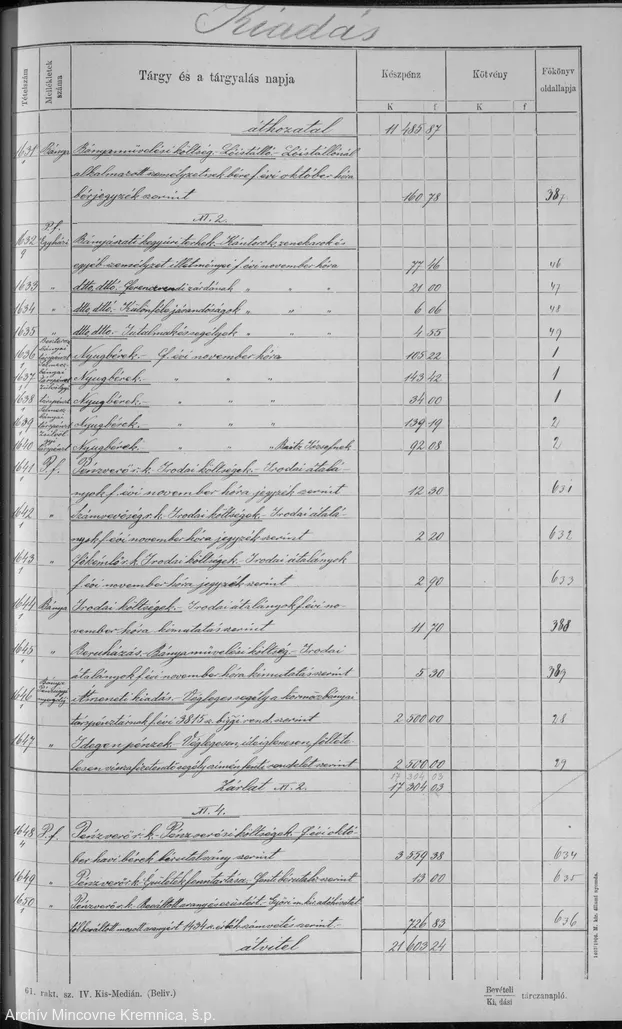 Kiadás
Tételszám
Mellékletek száma
Tárgy és a tárgyalás napja
Készpénz
Kötvény
Főkönyv oldallapja
K f K f
áthozatal 11 485 87
1631 Bánya Bányaművelési költség. Lóistálló. Lóistállónál
alkalmazott személyzetnek bére f. évi október hóra
bérjegyzék szerint 160 78 387
XI. 2.
1632 P.f. Bányászati kegyúri terhek. Kántorok, zenekarok és
egyéb személyzet illetményei f. évi november hóra 77 46 46
1633 " dtto, dtto. zárdának " " " 21 00 47
1634 " dtto, dtto. Különféle járandóságok " " " 6 06 48
1635 " dtto, dtto. " " " 4 55 49
1636 Nyugbérek. f. évi november hóra 105 22 1
1637 Nyugbérek. " " " 143 42 1
1638 Nyugbérek. " " " 34 00 1
1639 Nyugbérek. " " " 139 19 2
1640 Nyugbérek. " " " Józsefnek 92 08 2
1641 P.f. Pénzverő r.k. Irodai költségek. Irodai átalá-
nyok f. évi november hóra jegyzék szerint 12 30 631
1642 " Számvevőség r.k. Irodai költségek. Irodai átalá-
nyok f. évi november hóra jegyzék szerint 2 20 632
1643 " Főkémlő r.k. Irodai költségek. Irodai átalányok
f. évi november hóra jegyzék szerint 2 90 633
1644 Bánya Irodai költségek. Irodai átalányok f. évi no-
vember hóra kimutatás szerint 11 70 388
1645 " Beruházás. Bányaművelési költség. Irodai
átalányok f. évi november hóra kimutatás szerint 5 30 389
1646 Átmeneti kiadás. Végleges segély a körmöczbányai
társpénztárnak f. évi 3815 sz. rend. szerint 2 500 00 28
1647 " Idegen pénzek. Véglegesen, ideiglenesen, félté-
telesen visszafizetendő segély czimén fenti rendelet szerint 2 500 00 29
17 304 03
Zárlat XI. 2. 17 304 03
XI. 4.
1648 P.f. Pénzverő r.k. Pénzverési költségek. f. évi októ-
ber havi bérek bérutalvány szerint 3 559 38 634
1649 " Pénzverő r.k. Épületek fenntartása. Fenti bérutalv. szerint 13 00 635
1650 " Pénzverő r.k. Beváltott arany és ezüstért. Győri m. kir. adóhivatal
által beváltott aranyért 1434 sz. érték számvetés szerint 726 83 636
átvitel 21 603 24
61. rakt. sz. IV. Kis-Medián. (Beliv.)
Bevételi
Kiadási
tárczanapló.
M. kir. állami nyomda.
Archív Mincovne Kremnica, š.p.